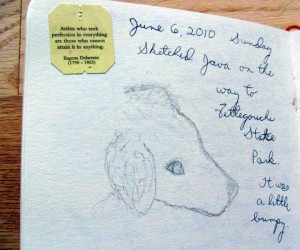 Artists who seek
perfection in everything
are those who cannot
attain it in anything.
Eugene Delacroix
(1798 - 1863)
June 6, 2010 Sunday
Sketched Java on the
way to
Tettegouche
State
Park.
It was
a little
bumpy.